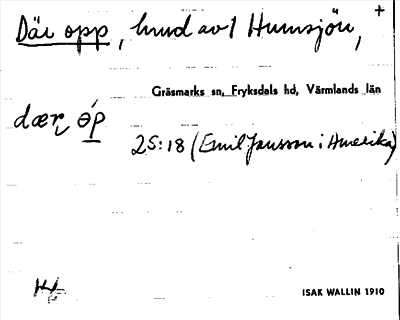 Där opp, lund av 1 Humsjön, +
Gräsmarks sn, Fryksdals hd, Värmlands län
dær ɵ́p
25:18 (Emil Jansson i Amerika)
ISAK WALLIN 1910